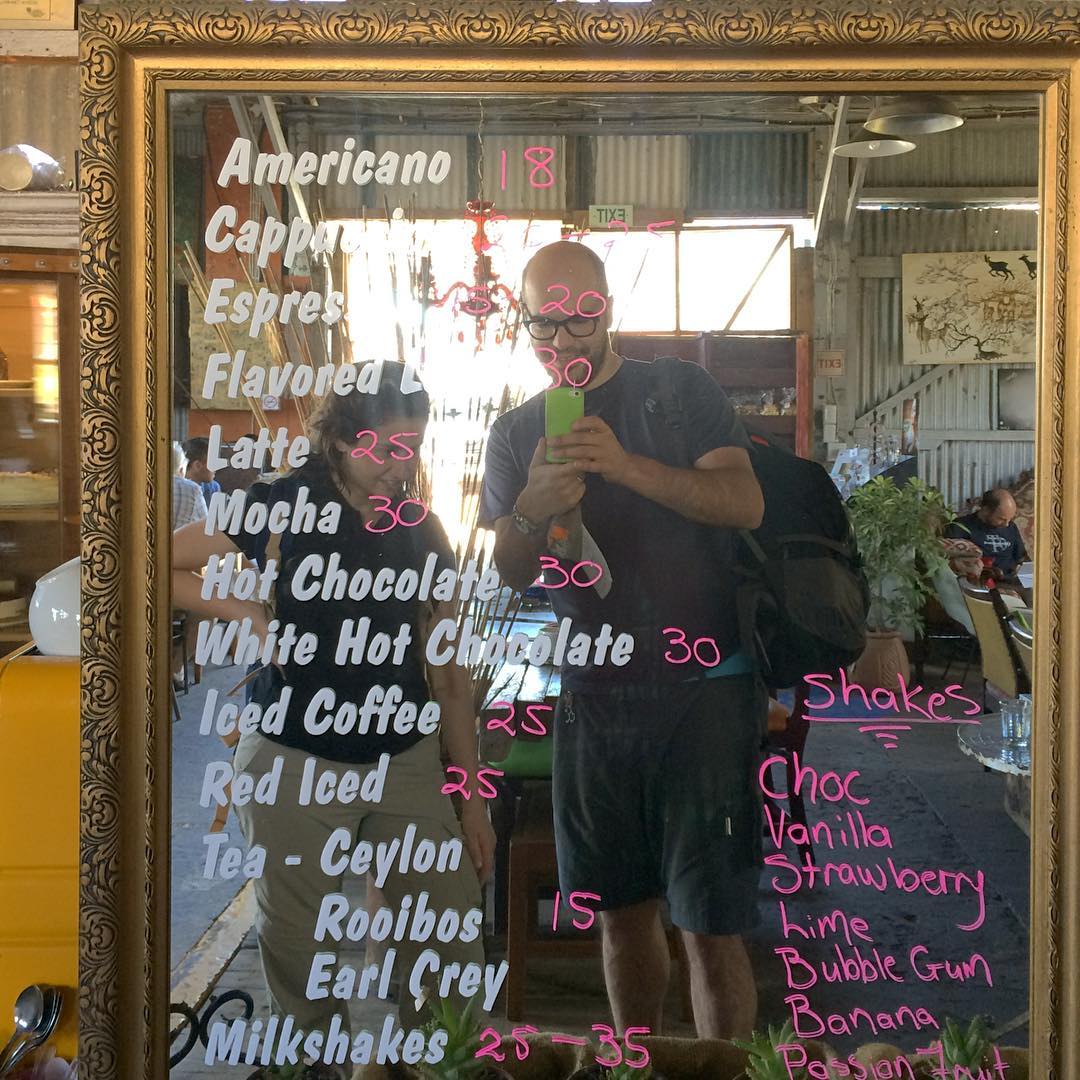 Americano 18
EXIT
Espres 20
Flavored L 30
EXIT
Latte 25
Mocha 30
Hot Chocolate 30
White Hot Chocolate 30
Iced Coffee 25
Red Iced 25
Tea - Ceylon
Rooibos 15
Earl Grey
Milkshakes 25 - 35
Shakes
Choc
Vanilla
Strawberry
Lime
Bubble Gum
Banana
Passion Fruit